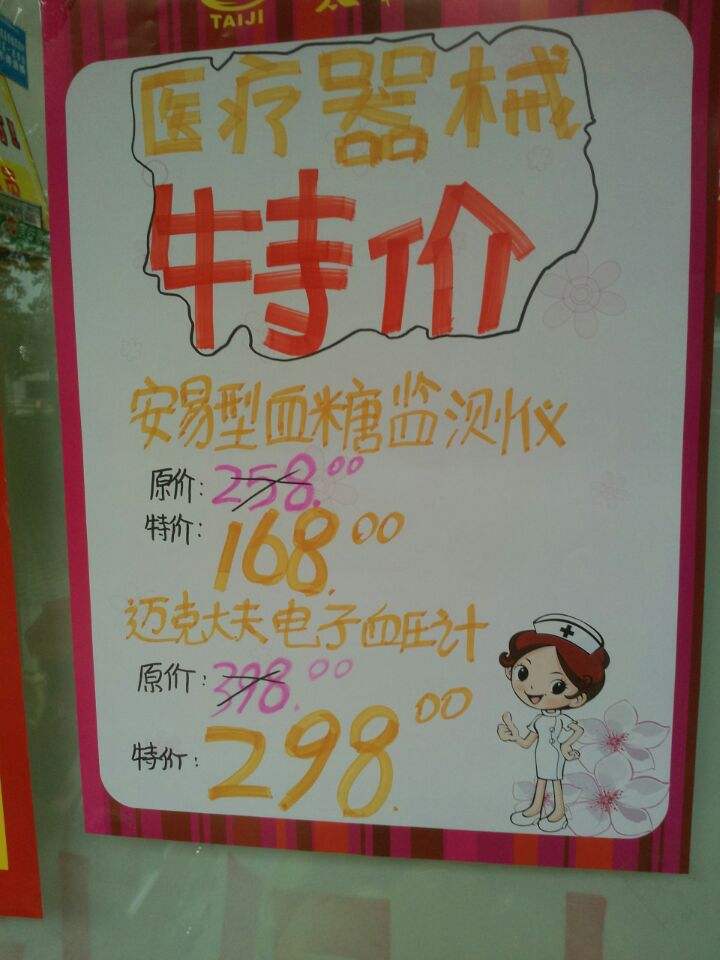 TAIJI
医疗器械
特价
安易型血糖监测仪
原价:258.00
特价:168.00
迈克大夫电子血压计
原价:398.00
特价:298.00